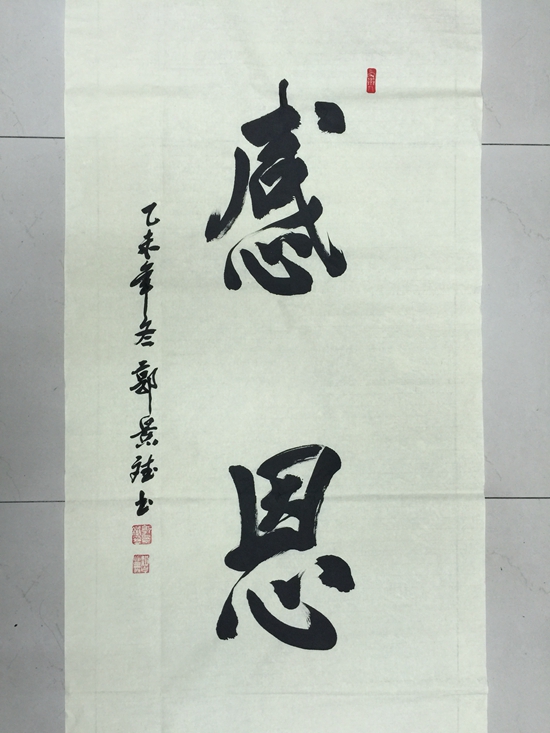 感恩
乙未年冬郭景斌书